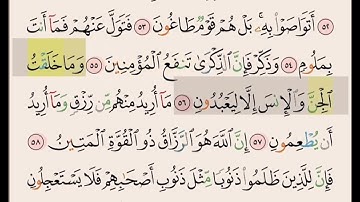 ٥٢ أَتَوَاصَوْا۟ بِهِۦ ۚ بَلْ هُمْ قَوْمٌ طَاغُونَ ٥٣ فَتَوَلَّ عَنْهُمْ فَمَآ أَنتَ
بِمَلُومٍ ٥٤ وَذَكِّرْ فَإِنَّ ٱلذِّكْرَىٰ تَنفَعُ ٱلْمُؤْمِنِينَ ٥٥ وَمَا خَلَقْتُ
ٱلْجِنَّ وَٱلْإِنسَ إِلَّا لِيَعْبُدُونِ ٥٦ مَآ أُرِيدُ مِنْهُم مِّن رِّزْقٍ وَمَآ أُرِيدُ
أَن يُطْعِمُونِ ٥٧ إِنَّ ٱللَّهَ هُوَ ٱلرَّزَّاقُ ذُو ٱلْقُوَّةِ ٱلْمَتِينُ ٥٨
فَإِنَّ لِلَّذِينَ ظَلَمُوا۟ ذَنُوبًا مِّثْلَ ذَنُوبِ أَصْحَٰبِهِمْ فَلَا يَسْتَعْجِلُونِ